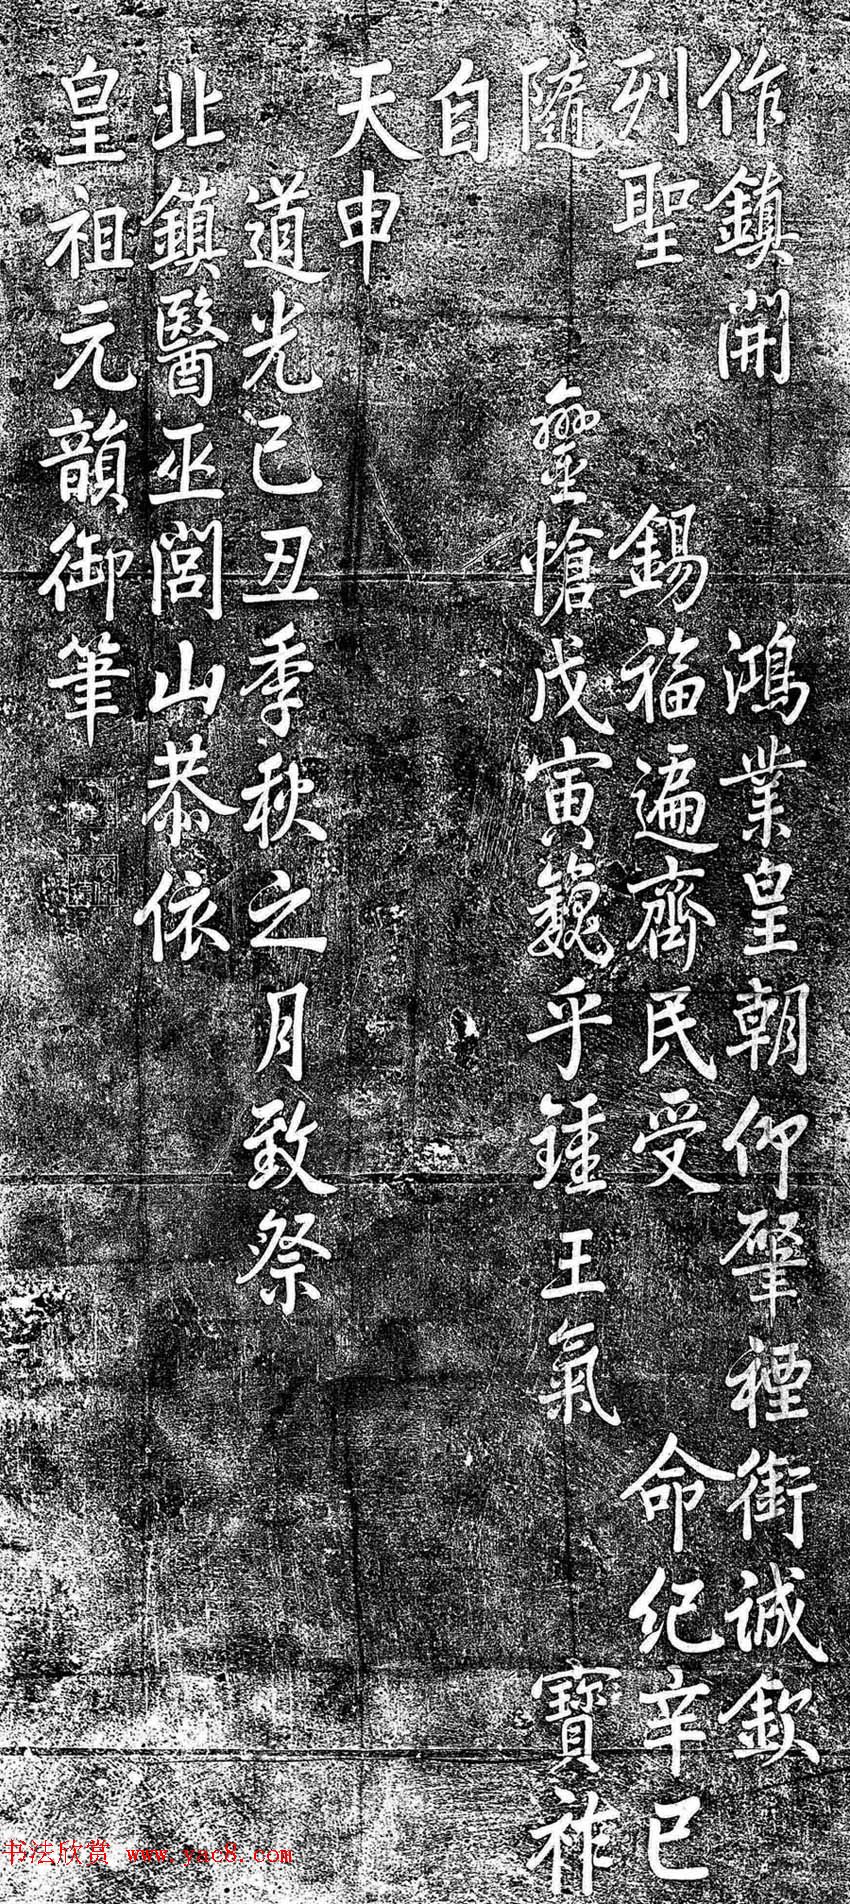 作鎮開鴻業皇朝仰肇禋銜誠欽
列聖錫福遍齊民受命紀辛巳
隨鑾愴戊寅巍乎鍾王氣寶祚
自
天申
道光己丑季秋之月致祭
北鎮醫巫閭山恭依
皇祖元韻御筆
书法欣赏 www.yac8.com